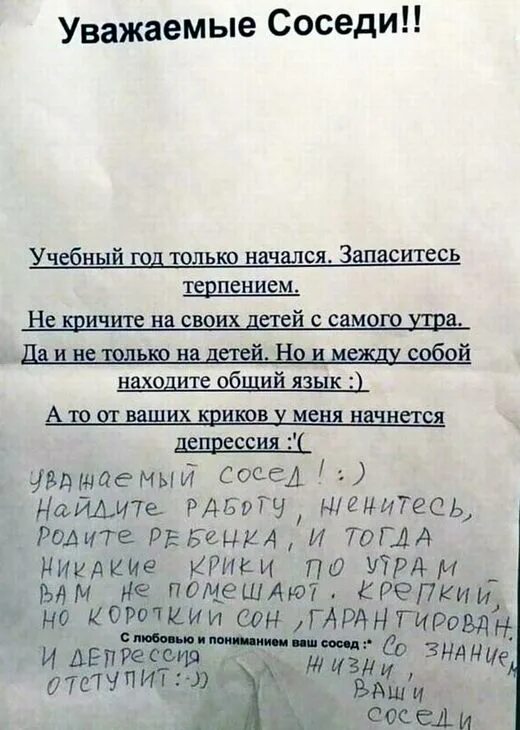 Уважаемые Соседи!!
Учебный год только начался. Запаситесь
терпением.
Не кричите на своих детей с самого утра.
Да и не только на детей. Но и между собой
находите общий язык :)
А то от ваших криков у меня начнется
депрессия :'(
УВАЖАЕМЫЙ СОСЕД! :)
НАЙДИТЕ РАБОТУ, ЖЕНИТЕСЬ,
РОДИТЕ РЕБЕНКА, И ТОГДА
НИКАКИЕ КРИКИ ПО УТРАМ
ВАМ НЕ ПОМЕШАЮТ. КРЕПКИЙ,
НО КОРОТКИЙ СОН, ГАРАНТИРОВАН.
С любовью и пониманием ваш сосед :*
И ДЕПРЕССИЯ
ОТСТУПИТ :-))
СО ЗНАНИЕМ
ЖИЗНИ,
ВАШИ
СОСЕДИ